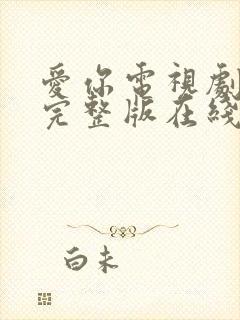 愛你電視劇
完整版在綫
白未